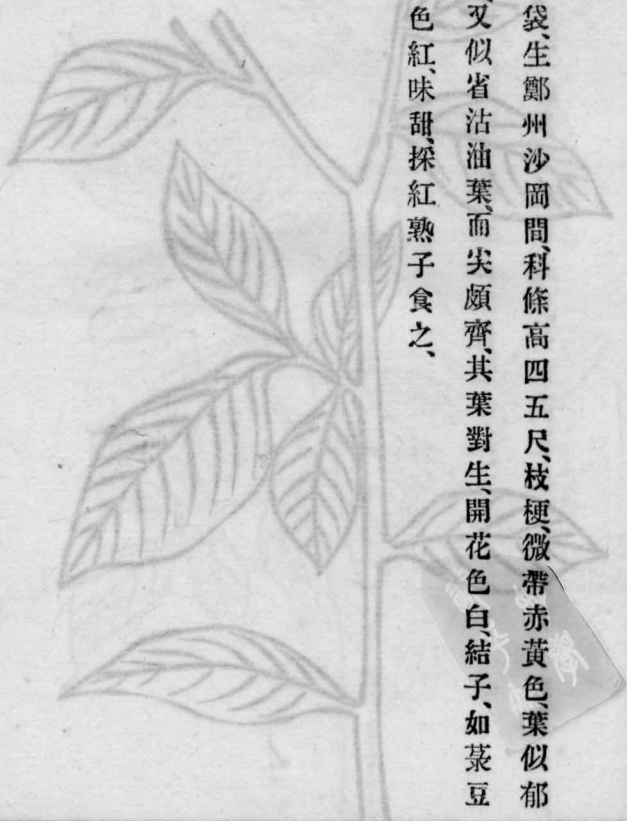 袋、生鄭州沙岡間、科條高四五尺、枝梗、微帶赤黃色、葉似郁
又似省沽油葉、而尖頗齊、其葉對生、開花色白、結子、如菉豆
色紅、味甜、採紅熟子食之、